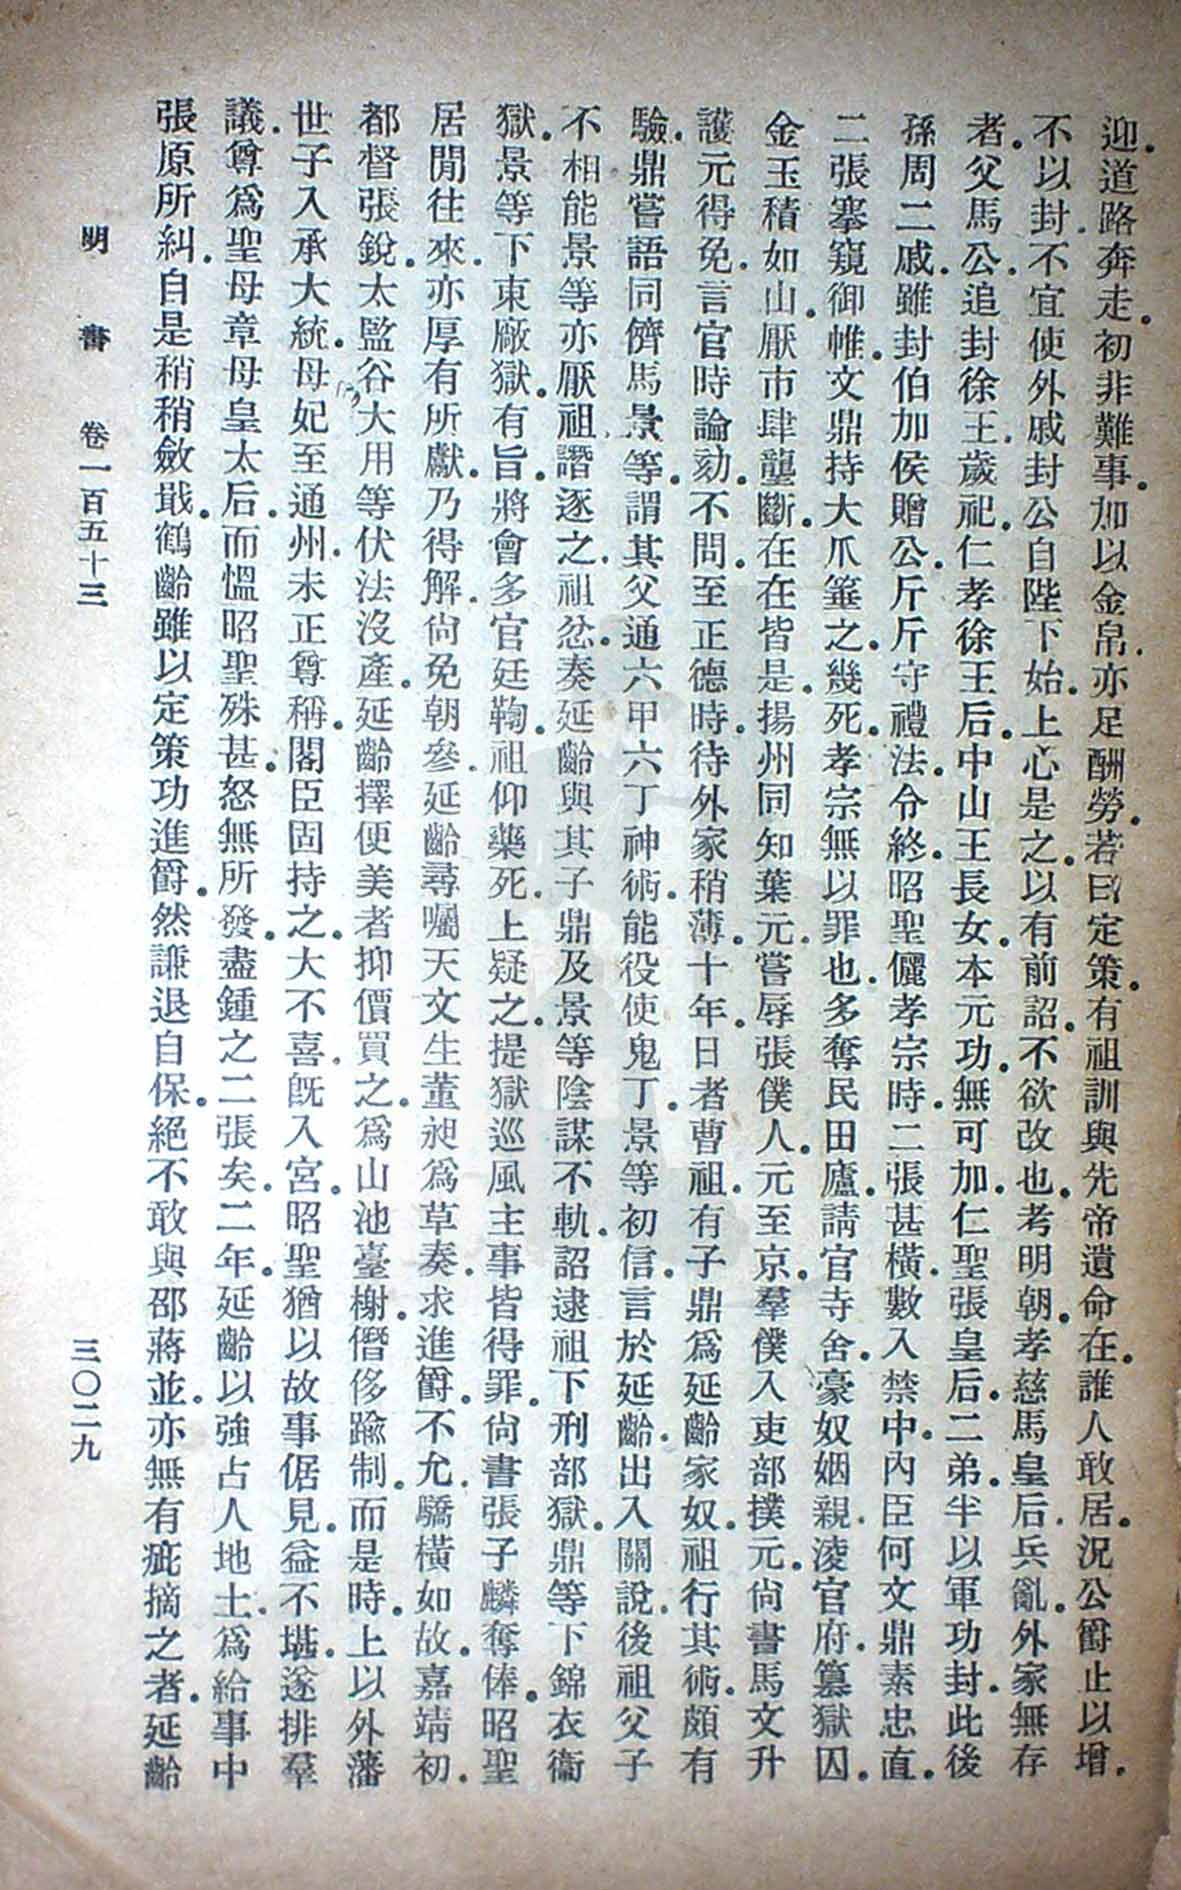 迎。道路奔走。初非難事。加以金帛。亦足酬勞。若曰定策。有祖訓與先帝遺命在。誰人敢居。況公爵止以增。
不以封。不宜使外戚封公自陛下始。上心是之。以有前詔。不欲改也。考明朝。孝慈馬皇后。兵亂。外家無存
者。父馬公。追封徐王。歲祀。仁孝徐王后。中山王長女。本元功。無可加。仁聖張皇后。二弟。半以軍功封。此後
孫周二戚。雖封伯加侯贈公。斤斤守禮法。令終。昭聖儷孝宗時。二張甚橫。數入禁中。內臣何文鼎素忠直。
二張搴窺御帷。文鼎持大爪箠之。幾死。孝宗無以罪也。多奪民田廬。請官寺舍。豪奴姻親。淩官府。篡獄囚。
金玉積如山。厭市肆壟斷。在在皆是。揚州同知葉元。嘗辱張僕人。元至京。羣僕入吏部撲元。尚書馬文升
護元得免。言官時論劾。不問。至正德時。待外家稍薄。十年。日者曹祖。有子鼎為延齡家奴。祖行其術。頗有
驗。鼎嘗語同儕馬景等。謂其父通六甲六丁神術。能役使鬼丁。景等初信。言於延齡。出入關說。後祖父子
不相能。景等亦厭祖。譖逐之。祖忿。奏延齡與其子鼎及景等陰謀不軌。詔逮祖下刑部獄。鼎等下錦衣衞
獄。景等下東廠獄。有旨。將會多官廷鞫。祖仰藥死。上疑之。提獄巡風主事皆得罪。尚書張子麟奪俸。昭聖
居閒往來。亦厚有所獻。乃得解。尚免朝參。延齡尋囑天文生董昶為草奏。求進爵。不允。驕橫如故。嘉靖初。
都督張銳。太監谷大用等伏法沒產。延齡擇便美者抑價買之。為山池臺榭。僭侈踰制。而是時。上以外藩
世子入承大統。母妃至通州。未正尊稱。閣臣固持之。大不喜。既入宮。昭聖猶以故事倨見。益不堪。遂排羣
議。尊為聖母章母皇太后。而慍昭聖殊甚。怒無所發。盡鍾之二張矣。二年。延齡以強占人地土。為給事中
張原所糾。自是稍稍斂戢。鶴齡雖以定策功進爵。然謙退自保。絕不敢與邵蔣並。亦無有疵摘之者。延齡
明書 卷一百五十三 三〇二九